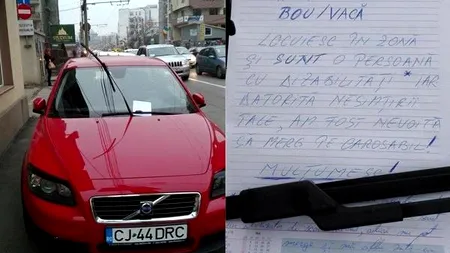 VOLVO
CJ 44 DRC
BOU/VACĂ
LOCUIESC ÎN ZONĂ
ȘI SUNT O PERSOANĂ
CU DIZABILITĂȚI * IAR
DATORITĂ NESIMȚIRII
TALE, AM FOST NEVOITĂ
SĂ MERG PE CAROSABIL!
MULȚUMESC!